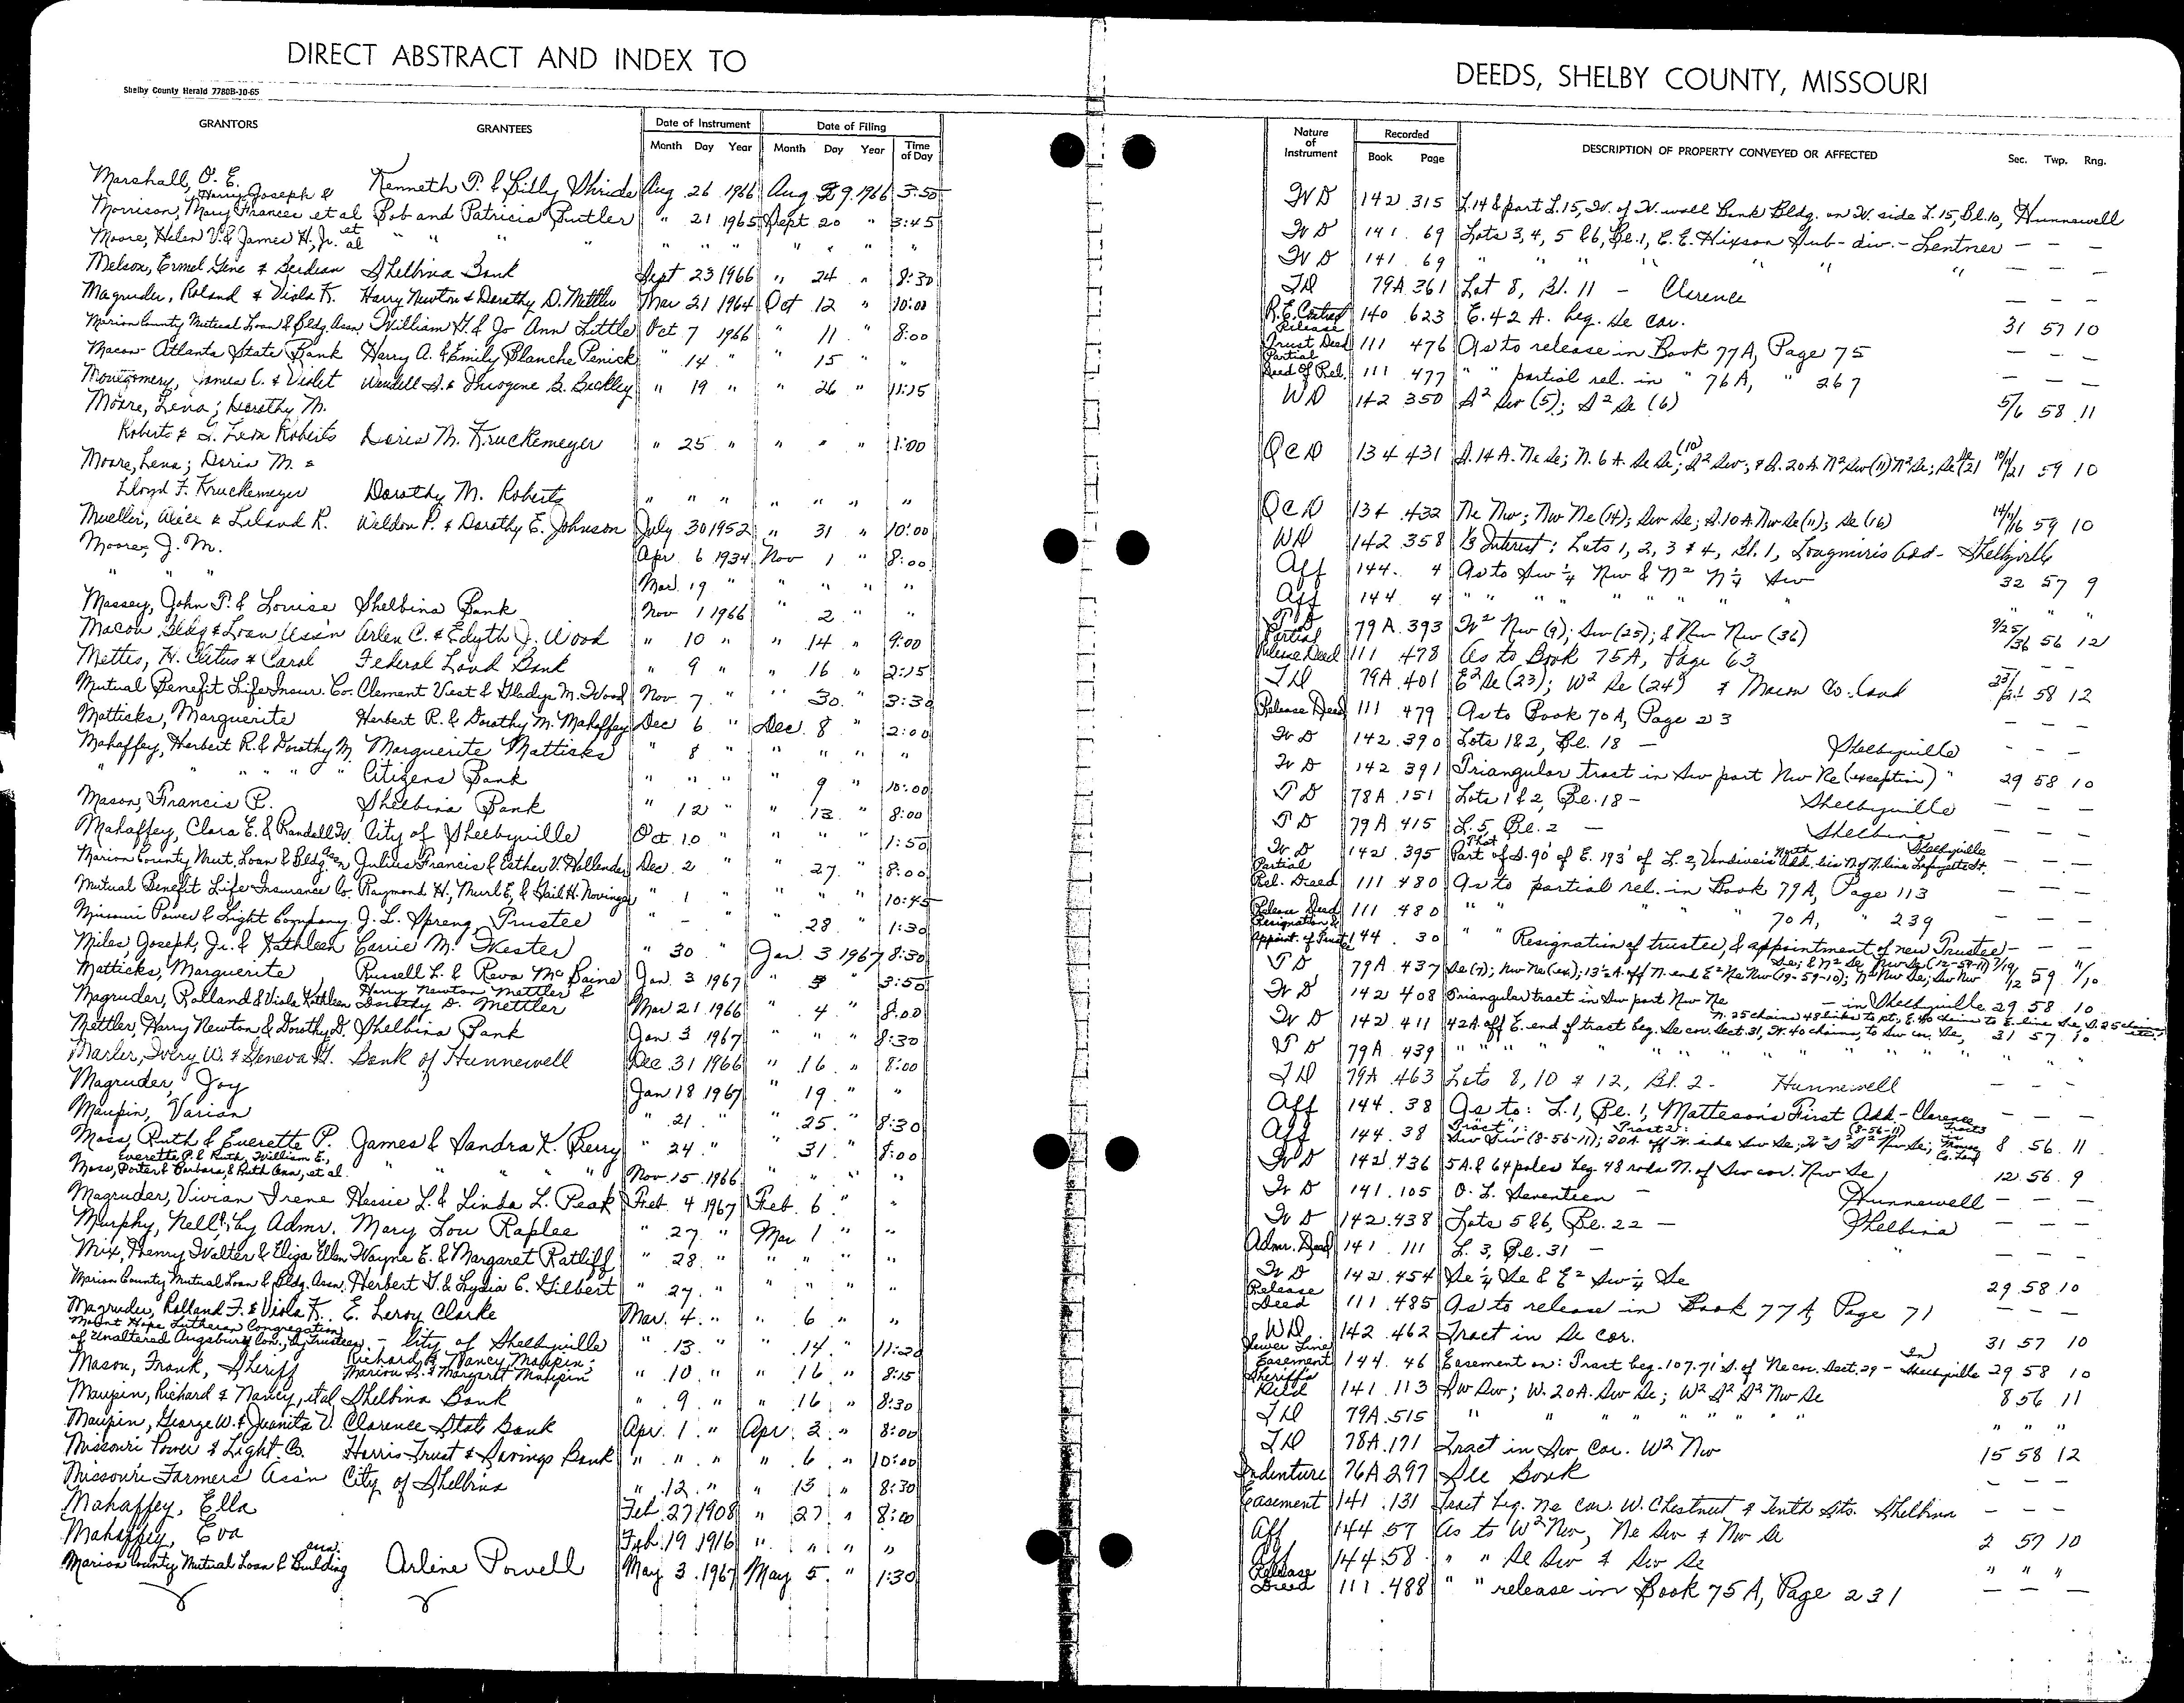 DIRECT ABSTRACT AND INDEX TO
Shelby County Herald 7780B-10-65
GRANTORS GRANTEES Date of Instrument Date of Filing
Month Day Year Month Day Year Time of Day
Marshall, O. E. Kenneth P. & Billy Shride Aug. 26 1966 Aug 29 1966 3:50
Morrison, Harry Joseph & Mary Frances et al Bob and Patricia Butler " 21 1965 Sept 20 " 3:45
Moore, Helen V. & James H. Jr. et al " " " " " " " " " "
Melson, Ermel Gene & Berdean Shelbina Bank Sept 23 1966 " 24 " 8:30
Magruder, Roland & Viola K. Harry Newton & Dorothy D. Mettler Mar 21 1964 Oct 12 " 10:00
Marion County Mutual Loan & Bldg. Assn. William H. & Jo Ann Little Oct 7 1966 " 11 " 8:00
Macon-Atlanta State Bank Harry A. & Emily Blanche Penick " 14 " " 15 " "
Montgomery, James C. & Violet Wendell S. & Imogene B. Beckley " 19 " " 26 " 11:15
Moore, Lena; Dorothy M.
Roberts & G. Leon Roberts Doris M. Kruckemeyer " 25 " " " " 1:00
Moore, Lena; Doris M. &
Lloyd F. Kruckemeyer Dorothy M. Roberts " " " " " " "
Mueller, Alice & Leland R. Weldon P. & Dorothy E. Johnson July 30 1952 " 31 " 10:00
Moore, J. M. Apr 6 1934 Nov 1 " 8:00
" " " Mar 19 " " " " "
Massey, John P. & Louise Shelbina Bank Nov 1 1966 " 2 " "
Macon Bldg & Loan Ass'n Arlen C. & Edyth J. Wood " 10 " " 14 " 9:00
Mettes, H. Cletus & Carol Federal Land Bank " 9 " " 16 " 2:15
Mutual Benefit Life Insur. Co. Clement Vest & Gladys M. Wood Nov 7 " " 30 " 3:30
Matticks, Marguerite Herbert R. & Dorothy M. Mahaffey Dec 6 " Dec. 8 " 2:00
Mahaffey, Herbert R. & Dorothy M. Marguerite Matticks " 8 " " " " "
" " " " " Citizens Bank " " " " 9 " 10:00
Mason, Francis P. Shelbina Bank " 12 " " 13 " 8:00
Mahaffey, Clara E. & Randell W. City of Shelbyville Oct 10 " " " " 1:50
Marion County Mut. Loan & Bldg. Assn Julius Francis & Esther V. Hollender Dec. 2 " " 27 " 8:00
Mutual Benefit Life Insurance Co. Raymond H., Murl E., & Gail H. Novinger " 1 " " " " 10:45
Missouri Power & Light Company J. L. Spreng, Trustee " - " " 28 " 1:30
Miles Joseph, Jr. & Kathleen Carrie M. Hester " 30 " Jan. 3 1967 8:30
Matticks, Marguerite Russell L. & Rava McBaine Jan. 3 1967 " 3 " 3:50
Magruder, Rolland & Viola Kathleen Harry Newton Mettler & Dorothy D. Mettler Mar 21 1966 " 4 " 8:00
Mettler, Harry Newton & Dorothy D. Shelbina Bank Jan. 3 1967 " " " 8:30
Marler, Ivery W. & Geneva H. Bank of Hunnewell Dec 31 1966 " 16 " 8:00
Magruder, Joy Jan 18 1967 " 19 " "
Maupin, Varian " 21 " " 25 " 8:30
Moss, Ruth & Everette P. James & Sandra K. Berry " 24 " " 31 " 8:00
Moss, Everette P. & Ruth, William E., Porter & Barbara & Ruth Ann, et al. " " " " " Nov. 15 1966 " " " "
Magruder, Vivian Irene Hessie L. & Linda L. Peak Feb. 4 1967 Feb. 6 " "
Murphy, Nell, by Admr. Mary Lou Raplee " 27 " Mar 1 " "
Mix, Henry Walter & Eliza Ellen Wayne E. & Margaret Ratliff " 28 " " " " "
Marion County Mutual Loan & Bldg. Assn. Herbert G. & Lydia C. Hilbert " 27 " " " " "
Magruder, Rolland F. & Viola K. E. Leroy Clarke Mar. 4 " " 6 " "
Mount Hope Lutheran Congregation of Unaltered Augsburg Con., by Trustees - City of Shelbyville " 13 " " 14 " 11:20
Mason, Frank, Sheriff Richard & Nancy Maupin; Marion S. & Margaret Maupin " 10 " " 16 " 8:15
Maupin, Richard & Nancy, et al Shelbina Bank " 9 " " 16 " 8:30
Maupin, George W. & Juanita V. Clarence State Bank Apr. 1 " Apr. 3 " 8:00
Missouri Power & Light Co. Harris Trust & Savings Bank " " " " 6 " 10:00
Missouri Farmers Ass'n City of Shelbina " 12 " " 13 " 8:30
Mahaffey, Ella Feb 27 1908 " 27 " 8:00
Mahaffey, Eva Feb. 19 1916 " " " "
Marion County Mutual Loan & Building Assn. Arline Powell May 3 1967 May 5 " 1:30
DEEDS, SHELBY COUNTY, MISSOURI
Nature of Instrument Recorded DESCRIPTION OF PROPERTY CONVEYED OR AFFECTED Sec. Twp. Rng.
Book Page
W D 142 315 L.14 & part L.15, W. of W. wall Bank Bldg. on W. side L.15, Bl.10, Hunnewell
W D 141 69 Lots 3, 4, 5 & 6, Bl. 1, C. E. Hixson Sub-div. - Lentner - - -
W D 141 69 " " " " " " - - -
T D 79A 361 Lot 8, Bl. 11 - Clarence - - -
R.E. Contract 140 623 E. 42 A. beg. Se cor. 31 57 10
Release Trust Deed 111 476 As to release in Book 77A, Page 75 - - -
Partial Deed of Rel. 111 477 " " partial rel. in " 76A, " 267 - - -
WD 142 350 S² Sw (5); S² Se (6) 5/6 58 11
Q C D 134 431 S. 14 A. Ne Se; N. 6 A. Se Se; S² Sw; (10) & S. 20A. N² Sw (11) N² Se; Se 59 10
Q C D 134 432 Ne Nw; Nw Ne (14); Sw Se; S. 10 A. Nw Se (11); Se (16) 14/11/16 59 10
WD 142 358 1/3 Interest: Lots 1, 2, 3 & 4, Bl. 1, Longmire's Add - Shelbyville
Aff 144 4 As to Sw ¼ Nw & N² N ¼ Sw 32 57 9
Aff 144 4 " " " " " " " " " "
T D 79A 393 W² Nw (9); Sw (25); & Nw Nw (36) 9/25/36 56 12
Partial Release Deed 111 478 As to Book 75A, Page 63 - - -
T D 79A 401 E² Se (23); W² Se (24) & Macon Co. land 23/24 58 12
Release Deed 111 479 As to Book 70A, Page 23 - - -
W D 142 390 Lots 1 & 2, Bl. 18 - Shelbyville - - -
W D 142 391 Triangular tract in Sw part Nw Ne (exception) " 29 58 10
T D 78A 151 Lots 1 & 2, Bl. 18 - Shelbyville - - -
T D 79A 415 L. 5, Bl. 2 - Shelbina - - -
W D 142 395 That Part of S. 90' of E. 193' of L. 2, Vandiver's North Add. lis N of N. line Lafayette St. Shelbyville - - -
Partial Rel. Deed 111 480 As to partial rel. in Book 79A, Page 113 - - -
Release Deed 111 480 " " " " 70A, " 239 - - -
Resignation & Appoint. of Trustee 144 30 " " Resignation of trustee, & appointment of new Trustee - - -
T D 79A 437 Se (7); Nw Ne (ex); 13½ A. off N. end E² Ne Nw (19-59-10); N² Nw Se; Sw Nw Se; & N² Se Nw Se (12-59-11) 59
W D 142 408 Triangular tract in Sw part Nw Ne - in Shelbyville 29 58 10
W D 142 411 42A. off E. end of tract beg. Se cor. Sect. 31, W. 40 chains, to Sw cor. Se, N. 25 chains 48 links to pt., E. 40 chains to E. line Se, S. 25 chains 31 57 10
T D 79A 439 " " " " " " " " " " "
T D 79A 463 Lots 8, 10 & 12, Bl. 2 - Hunnewell - - -
Aff 144 38 As to: L. 1, Bl. 1, Matteson's First Add - Clarence - - -
Aff 144 38 Tract 1: Sw Sw (8-56-11); Tract 2: 20A. off W. side Sw Se; W² S² S² Nw Se; (8-56-11) Co. Land 8 56 11
W D 142 436 5A. & 64 poles beg. 48 rods N. of Sw cor. Nw Se 12 56 9
W D 141 105 O. L. Seventeen - Hunnewell - - -
W D 142 438 Lots 5 & 6, Bl. 22 - Shelbina - - -
Admr. Deed 141 111 L. 3, Bl. 31 - " - - -
W D 142 454 Se ¼ Se & E² Sw ¼ Se 29 58 10
Release Deed 111 485 As to release in Book 77A, Page 71 - - -
WD 142 462 Tract in Se cor. 31 57 10
Sewer Line Easement 144 46 Easement on: Tract beg. 107.71' S. of Ne cor. Sect. 29 - In Shelbyville 29 58 10
Sheriff's Deed 141 113 Sw Sw; W. 20A. Sw Se; W² S² S² Nw Se 8 56 11
T D 79A 515 " " " " " " " " " " "
T D 78A 171 Tract in Sw Cor. W² Nw 15 58 12
Indenture 76A 297 See Book - - -
Easement 141 131 Tract beg. Ne Cor. W. Chestnut & Tenth Sts. Shelbina - - -
Aff 144 57 As to W² Nw, Ne Sw & Nw Se 2 57 10
Aff 144 58 " " Se Sw & Sw Se " " "
Release Deed 111 488 " " release in Book 75A, Page 231 - - -